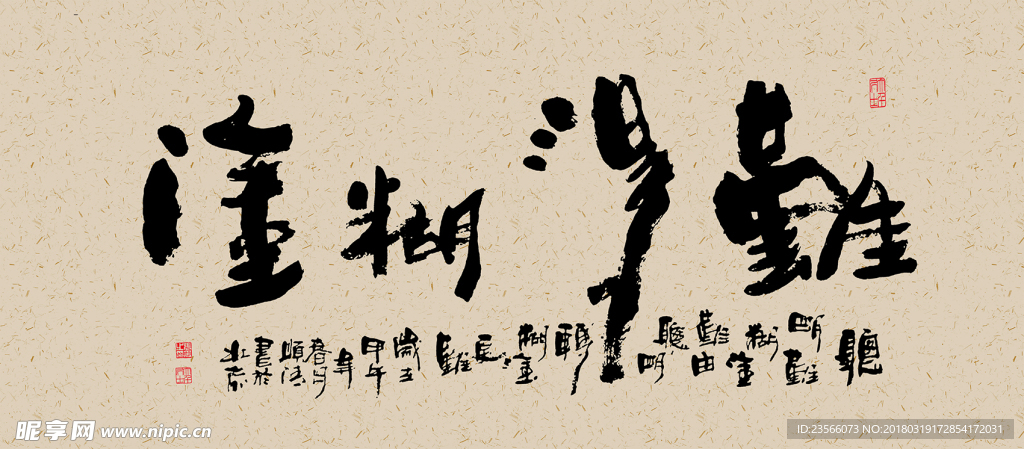 難得糊塗
聰
明難
糊塗
難由
聰明
轉
糊塗
更
難
歲
甲午
年
春月
書於
北京
昵享网 www.nipic.cn
ID:23566073 NO:20180319172854172031